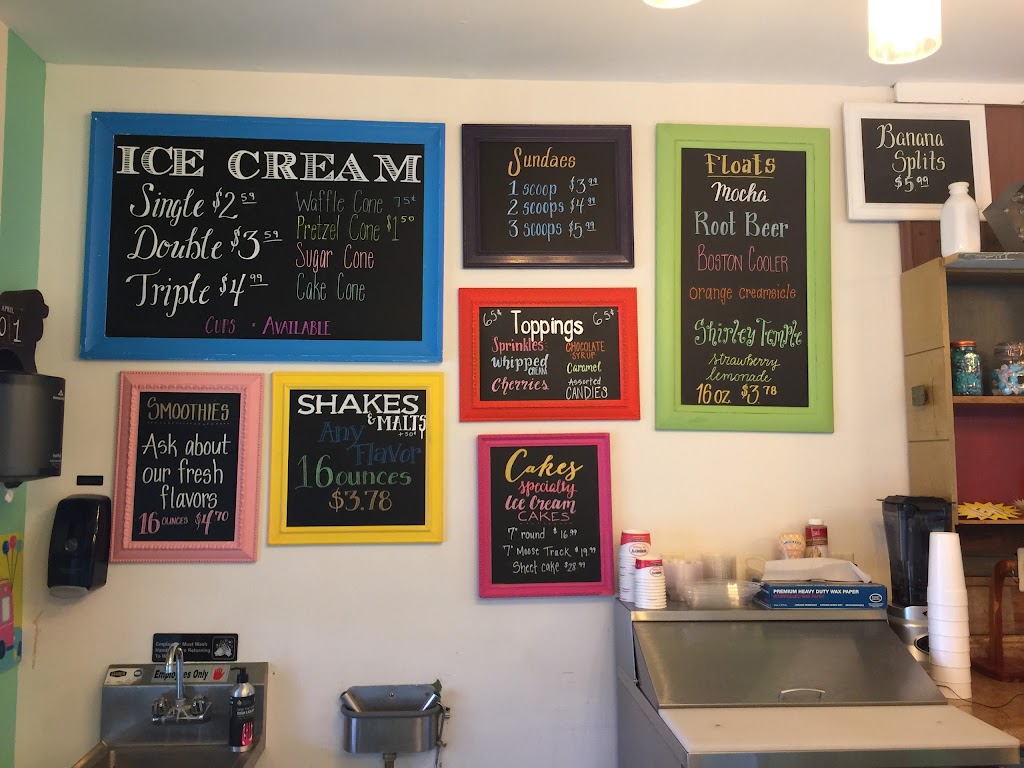 ICE CREAM
Single $2.59
Double $3.59
Triple $4.99
Waffle Cone 75¢
Pretzel Cone $1.50
Sugar Cone
Cake Cone
CUPS • AVAILABLE
Sundaes
1 scoop $3.99
2 scoops $4.99
3 scoops $5.99
Floats
Mocha
Root Beer
BOSTON COOLER
orange creamsicle
Shirley Temple
strawberry
lemonade
16 oz. $3.78
Banana
Splits
$5.99
65¢ Toppings 65¢
Sprinkles
whipped
CREAM
Cherries
CHOCOLATE
SYRUP
Caramel
Assorted
CANDIES
SMOOTHIES
Ask about
our fresh
flavors
16 OUNCES $4.70
SHAKES
& MALTS
+50¢
Any
Flavor
16 ounces
$3.78
Cakes
specialty
Ice Cream
CAKES
7" round $16.99
7" Moose Track $19.99
Sheet cake $28.99
APRIL
01
Employees Must Wash
Hands Before Returning
To Work
Employees Only
PREMIUM HEAVY DUTY WAX PAPER